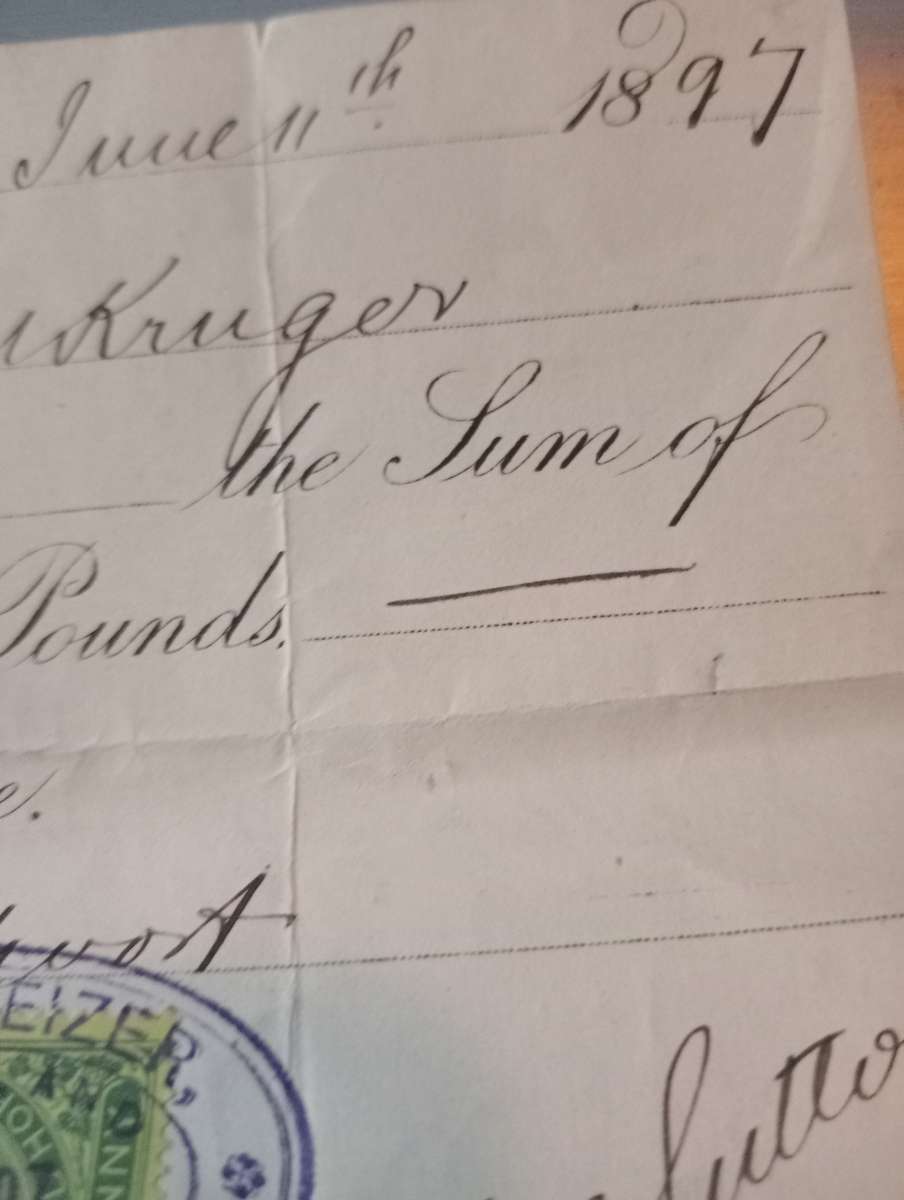 June 11th 1897
Kruger
the Sum of
Pounds.
e.
EIZER,
Sutto